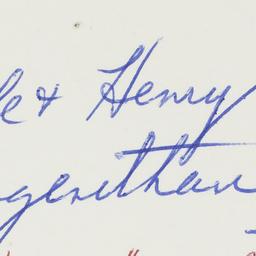 le & Henry
genthau